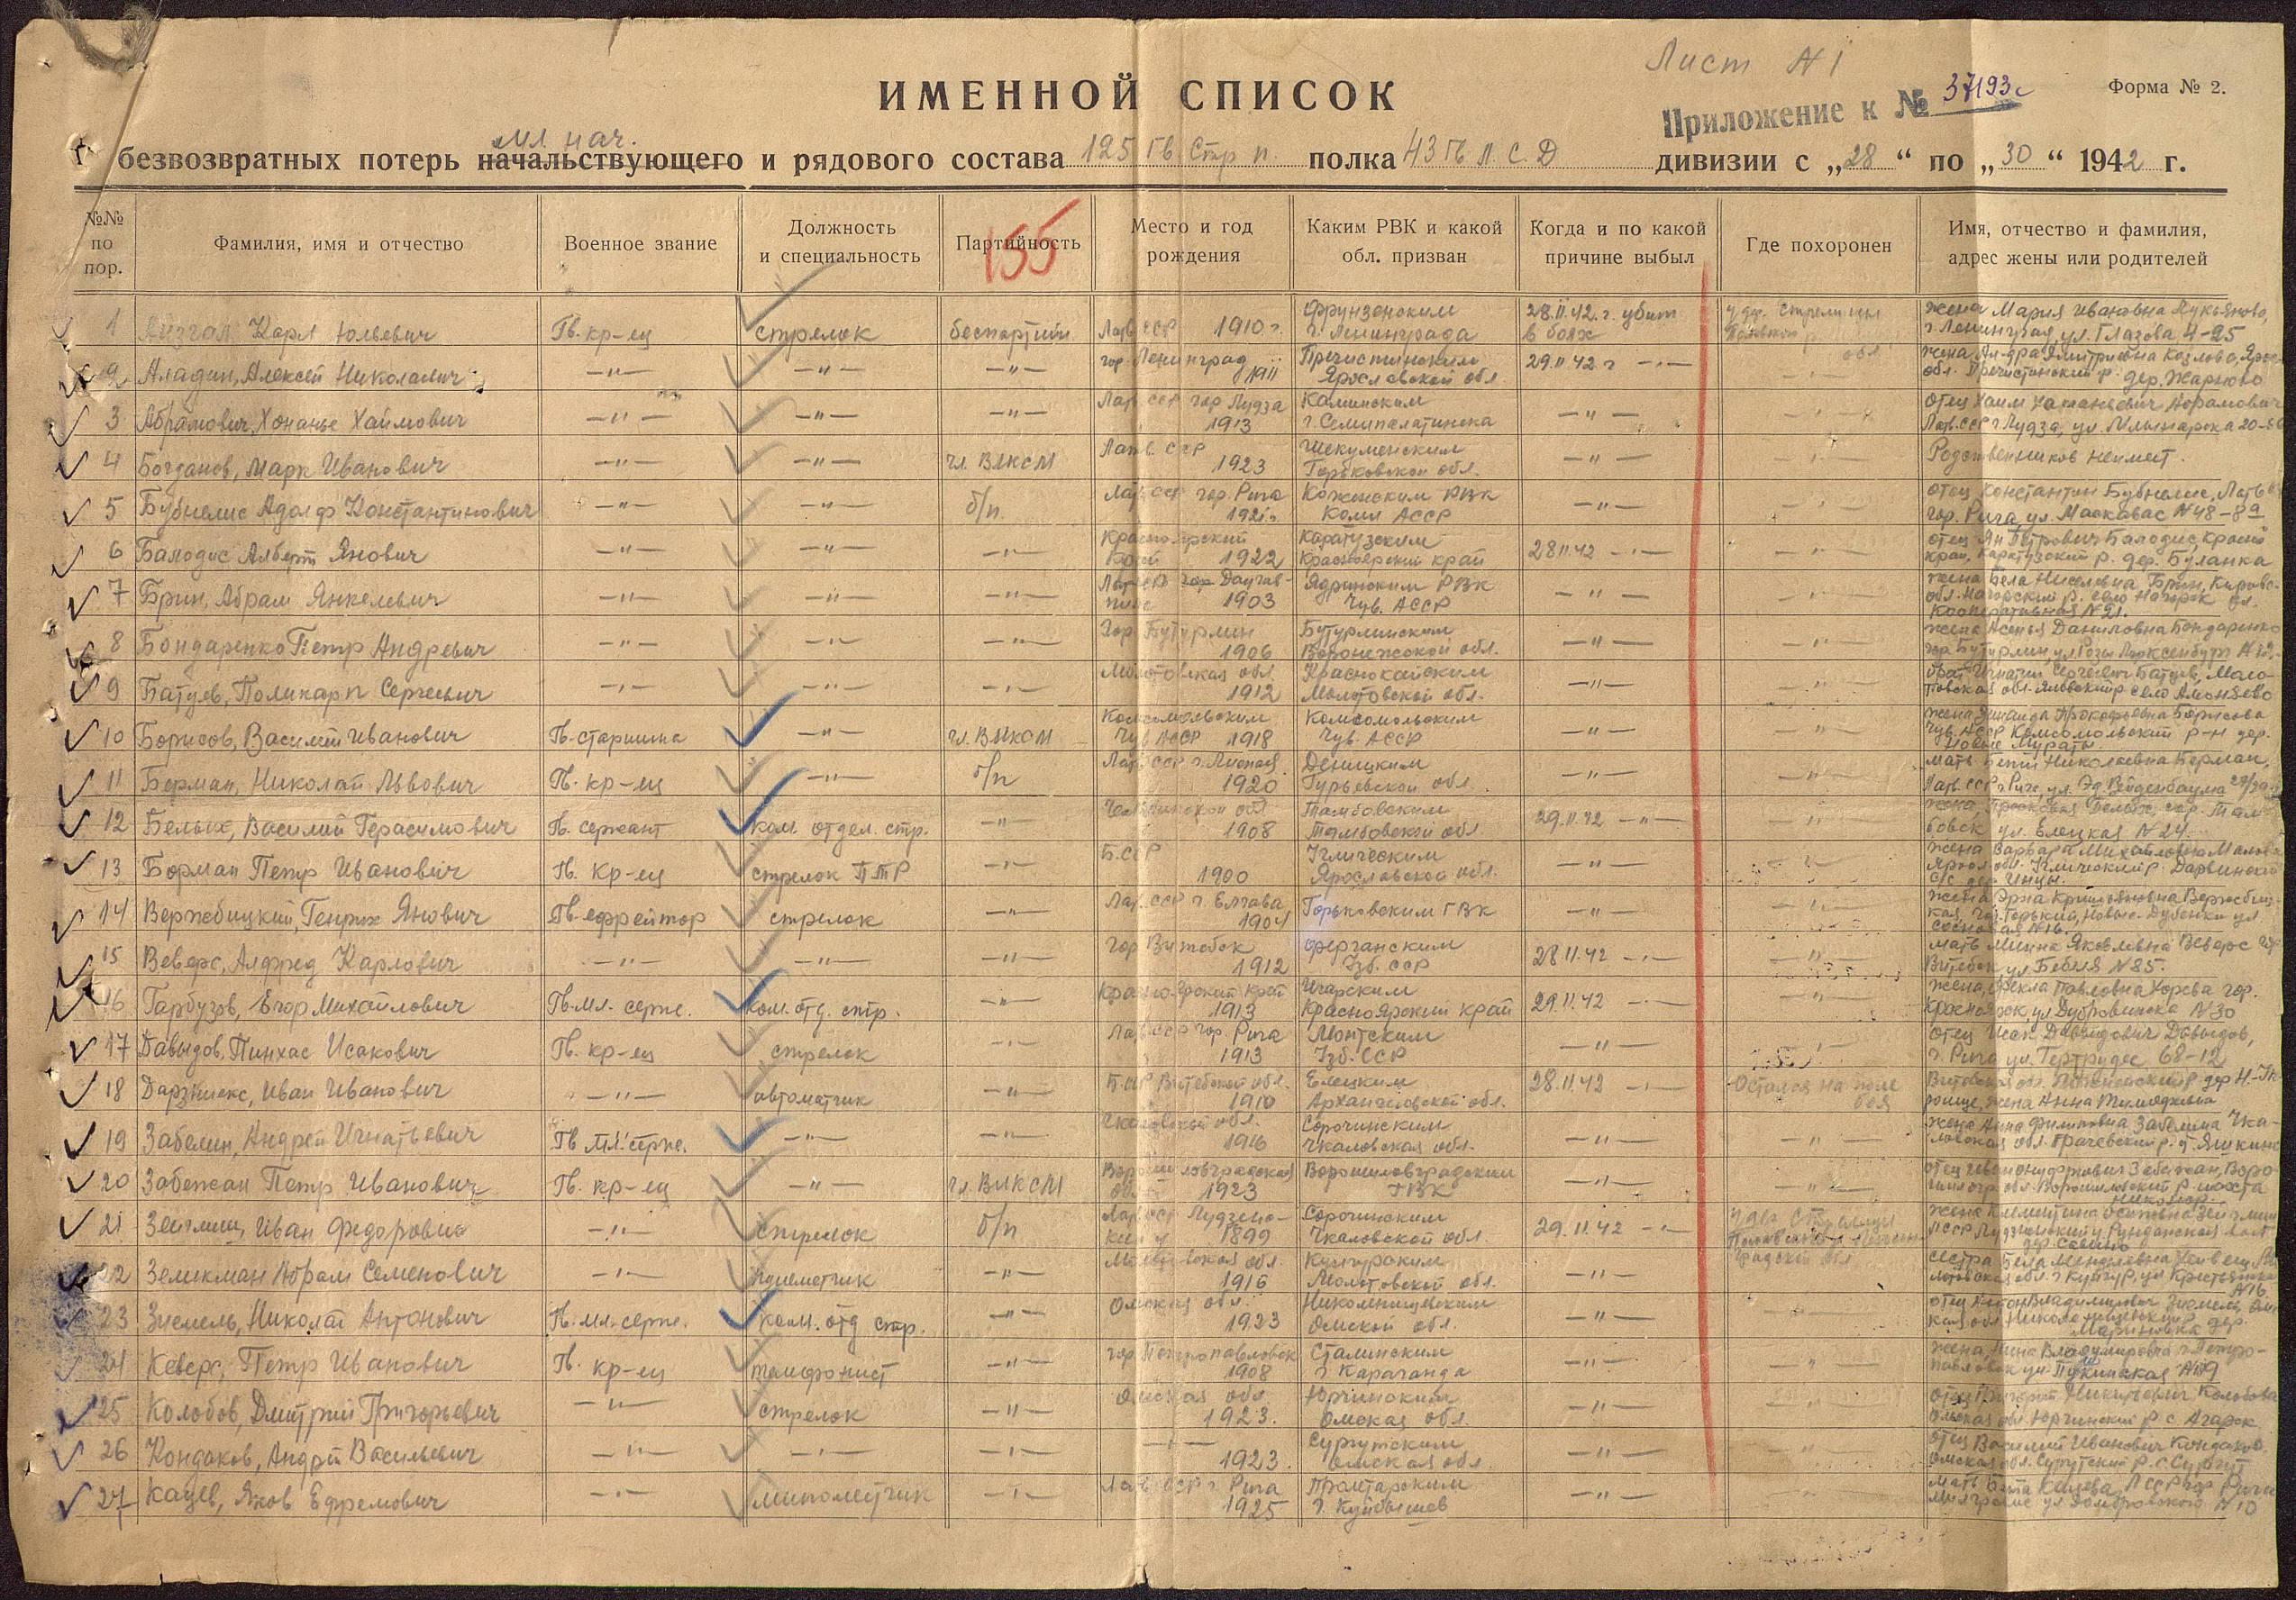 Лист № 1
ИМЕННОЙ СПИСОК
Приложение к № 37193с
Форма № 2.
мл. нач.
безвозвратных потерь начальствующего и рядового состава 125 Гв. Стр. п. полка 43 Гв. Л. С. Д дивизии с „28“ по „30“ 1942 г.
№№ по пор.
Фамилия, имя и отчество
Военное звание
Должность и специальность
Партийность
155
Место и год рождения
Каким РВК и какой обл. призван
Когда и по какой причине выбыл
Где похоронен
Имя, отчество и фамилия, адрес жены или родителей
1 Карл Юльевич Гв. кр-ец стрелок беспартийн. Латв. ССР 1910 г. Фрунзенским г. Ленинграда 28.11.42 г. убит в боях у дер. Стрелицы жена Мария Ивановна Лукьянова, г. Ленинград, ул. Глазова 4-25
2 Аладин, Алексей Николаевич —"— —"— —"— гор. Ленинград 1911 Пречистинским Ярославской обл. 29.11.42 г —"— —"— жена Ал-дра Дмитриевна Козлова, Яросл. обл. Пречистинский р. дер. Жарново
3 Абрамович, Хонанье Хаймович —"— —"— —"— Латв. ССР гор. Лудза 1913 Каминским г. Семипалатинска —"— —"— отец Хаим Абрамович Латв. ССР г. Лудза, ул. 20-
4 Богданов, Марк Иванович —"— —"— чл. ВЛКСМ Латв. ССР 1923 Горьковской обл. —"— —"— Родственников неимеет.
5 Бубнелис Адольф Константинович —"— —"— б/п. Латв. ССР гор. Рига 1921 г. Кожемским РВК Коми АССР —"— —"— отец Константин Бубнелис, Латв. гор. Рига, ул. Маскавас № 48-89
6 Балодис Альберт Янович —"— —"— —"— Красноярский край 1922 Каратузским Красноярский край 28.11.42 —"— —"— отец Ян Петрович Балодис, Красн. край, Каратузский р. дер. Буланка
7 Брин, Абрам Янкелевич —"— —"— —"— Латв. ССР гор. Даугавпилс 1903 Ядринским РВК Чув. АССР —"— —"— жена Бела Брин, Кировс. обл. Нагорский р. село Нагорск ул. Кооперативная № 21.
8 Бондаренко Петр Андревич —"— —"— —"— Гор. Бутурлин 1906 Бутурлинским Воронежской обл. —"— —"— жена Даниловна Бондаренко гор. Бутурлин ул. Розы Люксембург № 12
9 Батуев, Поликарп Сергеевич —"— —"— —"— Молотовская обл. 1912 Краснокамским Молотовской обл. —"— —"— брат Игнатий Сергеевич Батуев, Молотовская обл.
10 Борисов, Василий Иванович Гв. старшина —"— чл. ВЛКСМ Комсомольским Чув. АССР 1918 Комсомольским Чув. АССР —"— —"— жена Зинаида Прокофьевна Борисова Чув. АССР Комсомольский р-н дер. Новые Мураты.
11 Берман, Николай Львович Гв. кр-ец —"— б/п Латв. ССР г. Лиепая 1920 Деницким Гурьевской обл. —"— —"— мать Николаевна Берман, Латв. ССР г. Рига, ул. Эд. Вейденбаума
12 Белых, Василий Герасимович Гв. сержант ком. отдел. стр. —"— Челябинской обл. 1908 Тамбовским Тамбовской обл. 29.11.42 —"— —"— жена, Прасковья Белых, гор. Тамбовск ул. Елецкая № 24.
13 Борман Петр Иванович Гв. кр-ец стрелок ПТР —"— Б.ССР 1900 Угличским Ярославской обл. —"— —"— жена Варвара Михайловна Яросл. обл. Угличский р. Дарвинский с/с
14 Вержбицкий, Генрих Янович Гв. ефрейтор стрелок —"— Латв. ССР г. Елгава 1904 Горьковским ГВК —"— —"— жена Эрна Вержбицкая, гор. Горький, Новые-Дубенки ул. Сосновая № 16.
15 Веверс, Алфред Карлович —"— —"— —"— гор. Витебск 1912 Ферганским Узб. ССР 28.11.42 —"— —"— мать Минна Яковлевна Веверс гор. Витебск, ул. Бебеля № 85.
16 Гарбузов, Егор Михайлович Гв. мл. серж. ком. отд. стр. —"— Красноярский край 1913 Игарским Красноярский край 29.11.42 —"— —"— жена, Фекла Павловна Хорева гор. Красноярск, ул. Дубровинска № 30
17 Давыдов, Пинхас Исакович Гв. кр-ец стрелок —"— Латв. ССР гор. Рига 1913 Узб. ССР —"— —"— отец Исак Давыдович Давыдов, г. Рига ул. Гертрудес 68-12
18 Дарзниекс, Иван Иванович —"— автоматчик —"— Б.ССР Витебской обл. 1910 Елецким Архангеловской обл. 28.11.42 —"— Остался на поле боя жена Анна
19 Забелин, Андрей Игнатьевич Гв. мл. серж. —"— —"— Чкаловской обл. 1916 Сорочинским Чкаловская обл. —"— —"— жена Анна Филиповна Забелина Чкаловская обл. Грачевский р. д. Яшкино
20 Забежан Петр Иванович Гв. кр-ец —"— чл. ВЛКСМ Ворошиловградская обл. 1923 Ворошиловградским ГВК —"— —"— отец Иван Забежан, Ворошиловгр. обл. Ворошиловский р. шахта
21 Зейгмиш, Иван Федорович —"— стрелок б/п Латв. ССР 1899 Сорочинским Чкаловской обл. 29.11.42 —"— у дер. Стрелицы жена Клементина ЛССР дер. Савино
22 Зеликман Абрам Семенович —"— пулеметчик —"— 1916 Кунгурским Молотовской обл. —"— —"— сестра Бела Менделевна г. Кунгур, ул. Крестьянска № 16
23 Знемель, Николай Антонович Гв. мл. серж. ком. отд стр. —"— Омская обл. 1923 Омской обл. —"— —"— отец Антон Владимирович Мариновка
24 Кеверс, Петр Иванович Гв. кр-ец телефонист —"— гор. Петропавловск 1908 Сталинским г. Караганда —"— —"— жена, Нина Владимировна г. Петропавловск ул.
25 Колобов, Дмитрий Григорьевич —"— стрелок —"— Омская обл. 1923. Юргинским Омская обл. —"— —"— отец Григорий Никитович Колобов Омская обл. Юргинский р. с. Агарак
26 Кондаков, Андрей Васильевич —"— —"— —"— —"— 1923. Сургутским Омская обл. —"— —"— отец Василий Иванович Кондаков, Омская обл. Сургутский р. с. Сургут
27 Кацев, Яков Ефремович —"— минометчик —"— Латв. ССР г. Рига 1925 Пролетарским г. Куйбышев —"— —"— мать Берта Кацева, ЛССР гор. Рига ул. Домбровского № 10